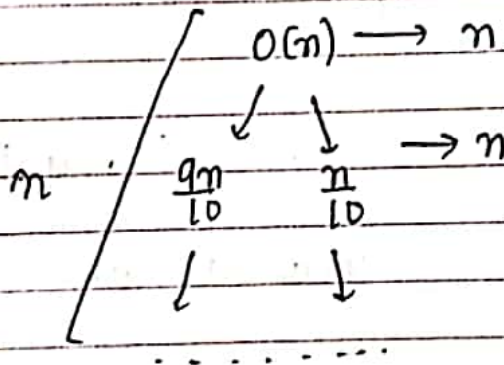 O(n) → n
n 9n/10 n/10 → n
. . . . . . . .